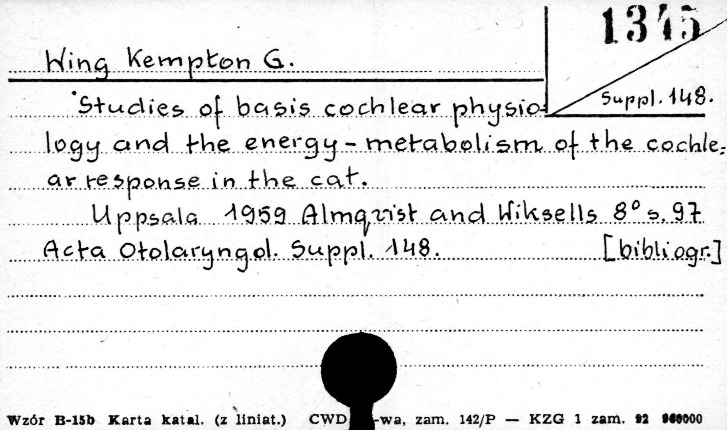 1345
Wing Kempton G.
Suppl. 148.
Studies of basis cochlear physio=
logy and the energy-metabolism of the cochle=
ar response in the cat.
Uppsala 1959 Almqvist and Wiksells 8° s. 97
Acta Otolaryngol. Suppl. 148. [bibliogr.]
Wzór B-15b Karta katal. (z liniat.) CWD -wa, zam. 142/P — KZG 1 zam. 92